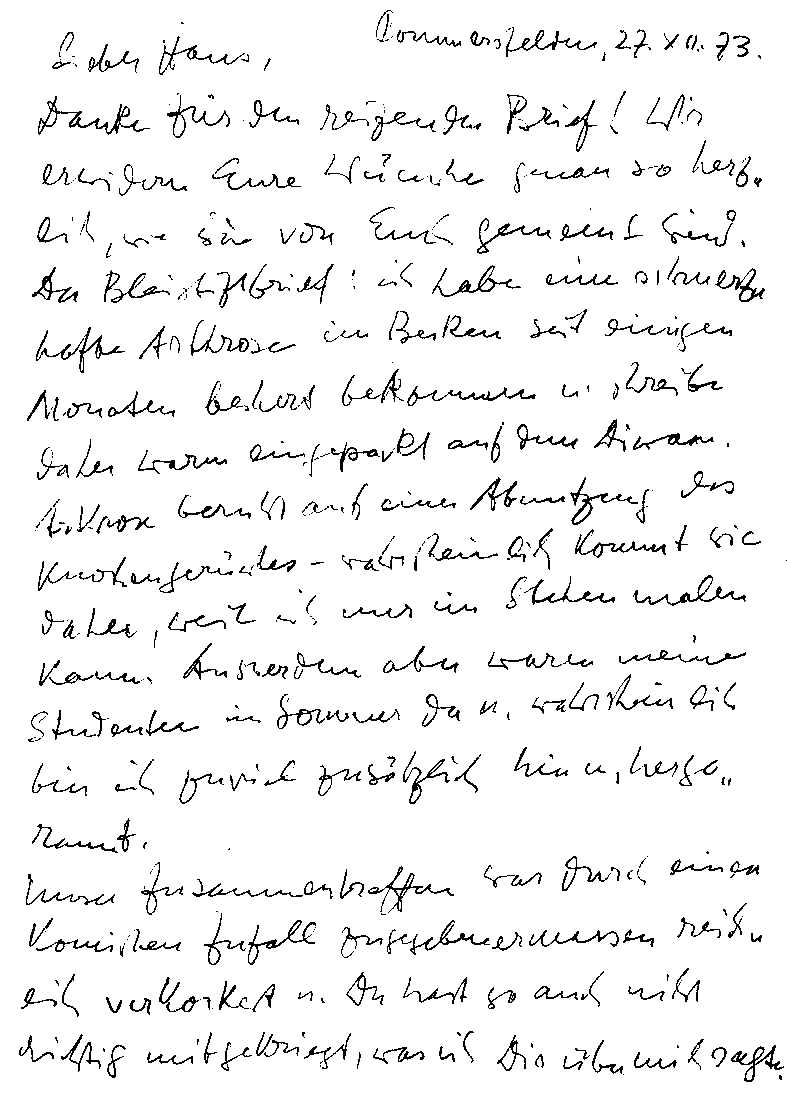 Pommersfelden, 27. XII. 73.
Lieber Hans,
Danke für den reizenden Brief! Wir
erwidern Eure Wünsche genau so herz-
lich, wie sie von Euch gemeint sind.
Der Bleistiftbrief: ich habe eine schmerz-
hafte Arthrose im Becken seit einigen
Monaten beschert bekommen u. schreibe
daher warm eingepackt auf dem Diwan.
Arthrose beruht auf einer Abnutzung des
Knochengerüstes – wahrscheinlich kommt sie
daher, weil ich nur im Stehen malen
kann. Ausserdem aber waren meine
Studenten im Sommer da u. wahrscheinlich
bin ich zuviel zusätzlich hin u. herge-
rannt.
Unser Zusammentreffen war durch einen
komischen Zufall zugegebenermassen reich-
lich verkorkst u. Du hast so auch nicht
richtig mitgekriegt, was ich Dir über mich sagte.